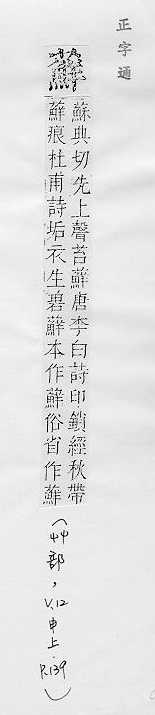 正字通
蘇典切先上聲苔蘚唐李白詩印鎖經秋帶
蘚痕杜甫詩垢衣生碧蘚本作蘚俗省作蘚
(艸部,
V.12
申上.
P.139)